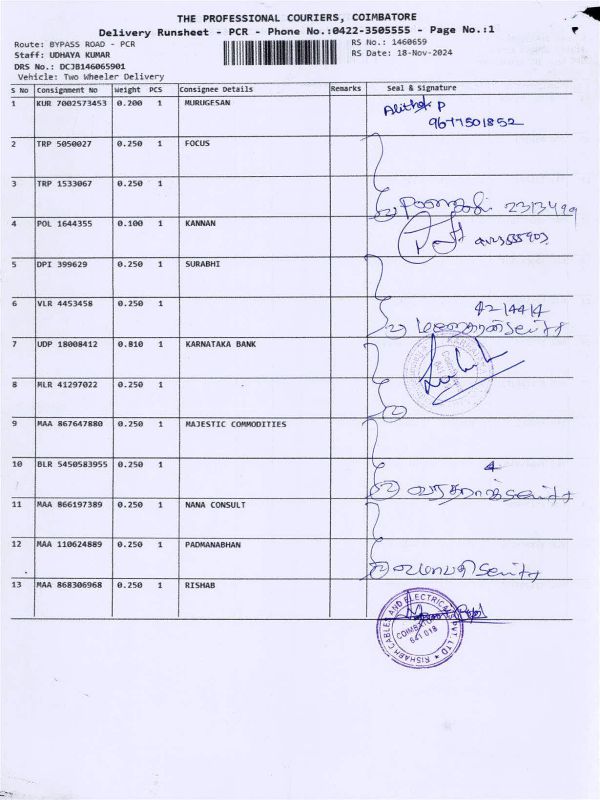 THE PROFESSIONAL COURIERS, COIMBATORE
Delivery Runsheet - PCR - Phone No.:0422-3505555 - Page No.:1
Route: BYPASS ROAD - PCR
RS No.: 1460659
Staff: UDHAYA KUMAR
RS Date: 18-Nov-2024
DRS No.: DCJB146065901
Vehicle: Two Wheeler Delivery
S No Consignment No Weight PCS Consignee Details Remarks Seal & Signature
1 KUR 7002573453 0.200 1 MURUGESAN
9677501852
2 TRP 5050027 0.250 1 FOCUS
3 TRP 1533067 0.250 1
4 POL 1644355 0.100 1 KANNAN
5 DPI 399629 0.250 1 SURABHI
6 VLR 4453458 0.250 1
7 UDP 18008412 0.810 1 KARNATAKA BANK
8 MLR 41297022 0.250 1
9 MAA 867647880 0.250 1 MAJESTIC COMMODITIES
10 BLR 5450583955 0.250 1
11 MAA 866197389 0.250 1 NANA CONSULT
12 MAA 110624889 0.250 1 PADMANABHAN
13 MAA 868306968 0.250 1 RISHAB
RISHABH CABLES AND ELECTRICALS PVT. LTD
COIMBATORE
641 018